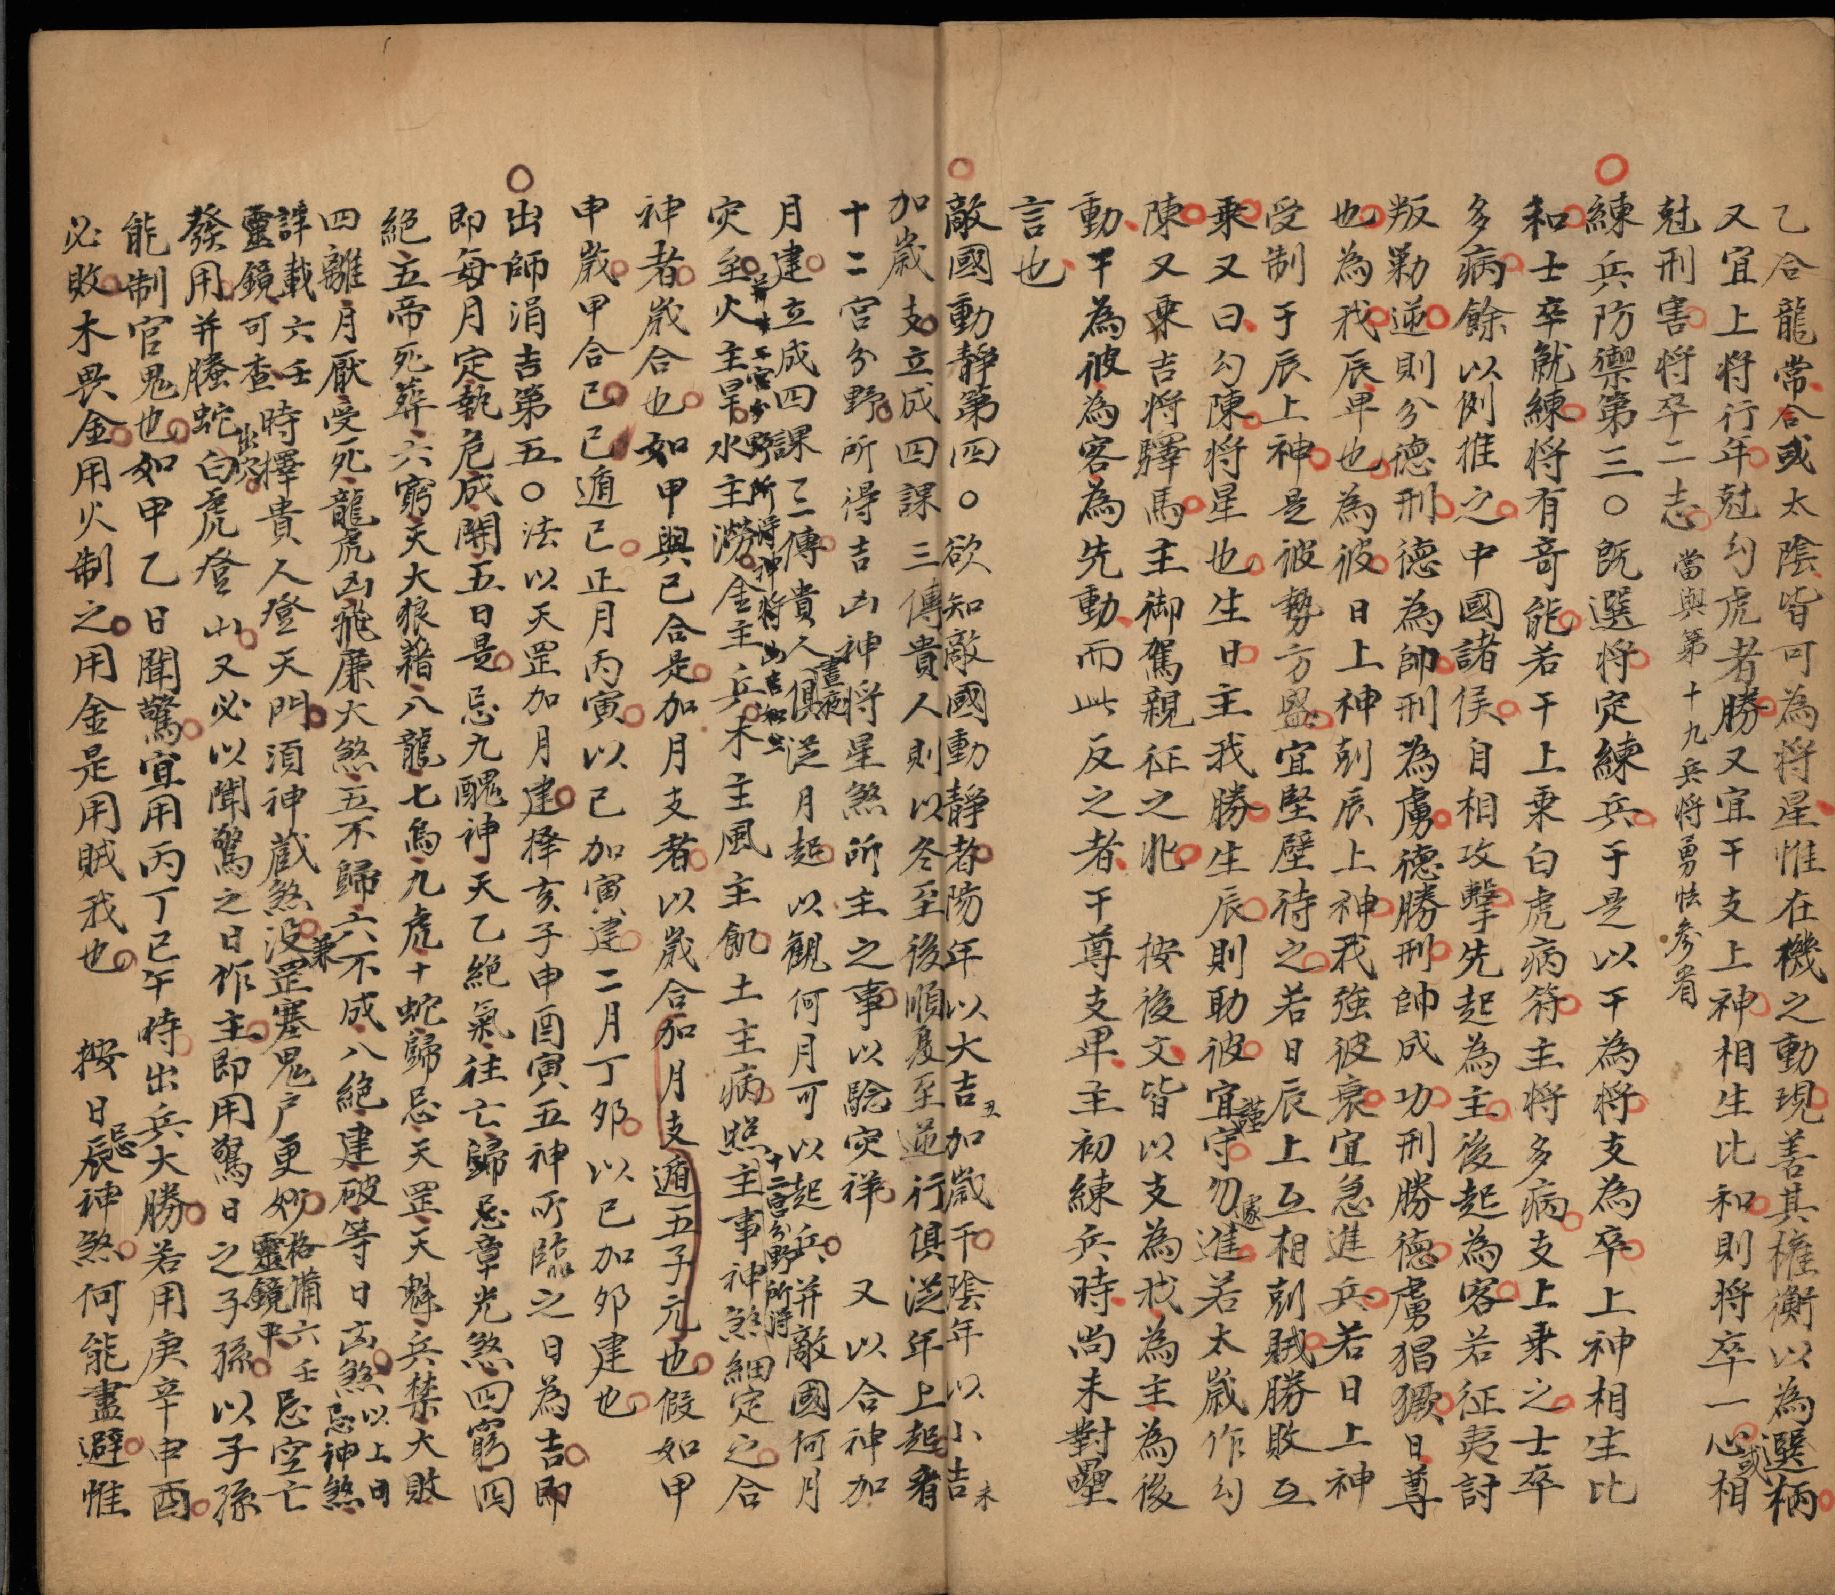 乙合龍常合或太陰皆可為將星惟在機之動現善其權衡以為選柄
又宜上將行年尅勾虎者勝又宜干支上神相生比和則將卒一心或相
尅刑害將卒二志當與第十九兵將勇怯參省
練兵防禦第三○既選將定練兵于是以干為將支為卒上神相生比
和士卒就練將有奇能若干上乘白虎病符主將多病支上乘之士卒
多病餘以例推之中國諸侯自相攻擊先起為主後起為客若征夷討
叛勦逆則分德刑德為帥刑為虜德勝刑帥成功刑勝德虜猖獗日尊
也為我辰卑也為彼日上神尅辰上神我強彼衰宜急進兵若日上神
受制于辰上神是彼勢方盛宜堅壁待之若日辰上互相尅賊勝敗互
乘又曰勾陳將星也生日主我勝生辰則助彼宜謹守勿遽進若太歲作勾
陳又乘吉將驛馬主御駕親征之兆 按後文皆以支為我為主為後
動干為彼為客為先動而此反之者干尊支卑主初練兵時尚未對壘
言也
敵國動靜第四○欲知敵國動靜者陽年以大吉丑加歲干陰年以小吉未
加歲支立成四課三傳貴人則以冬至後順夏至逆行俱從年上起者
十二宮分野所得吉凶神將星煞所主之事以驗灾祥 又以合神加
月建立成四課三傳貴人晝夜俱從月起以觀何月可以起兵并敵國何月
灾至火主旱水主澇金主兵木主風主飢土主病照主事神煞細定之合
十二宮分野所得
神者歲合也如甲與己合是加月支者以歲合加月支遁五子元也假如甲
申歲甲合己己遁己正月丙寅以己加寅建二月丁卯以己加卯建也
出師涓吉第五○法以天罡加月建擇亥子申酉寅五神所臨之日為吉即
即每月定執危成開五日是忌九醜神天乙絕氣往亡歸忌章光煞四窮四
絕五帝死葬六窮天大狼藉八龍七鳥九虎十蛇歸忌天罡天魁兵禁大敗
四離月厭受死龍虎凶飛廉大煞五不歸六不成八絕建破等日凶煞以上日忌神煞
詳載六壬靈鏡可查時擇貴人登天門須神藏煞沒兼罡塞鬼戶更妙格備六壬靈鏡中忌空亡
發用并螣蛇白虎登山又必以聞驚之日作主即用驚日之子孫以子孫
能制官鬼也如甲乙日聞驚宜用丙丁巳午時出兵大勝若用庚辛申酉
必敗木畏金用火制之用金是用賊我也 按日辰忌神煞何能盡避惟